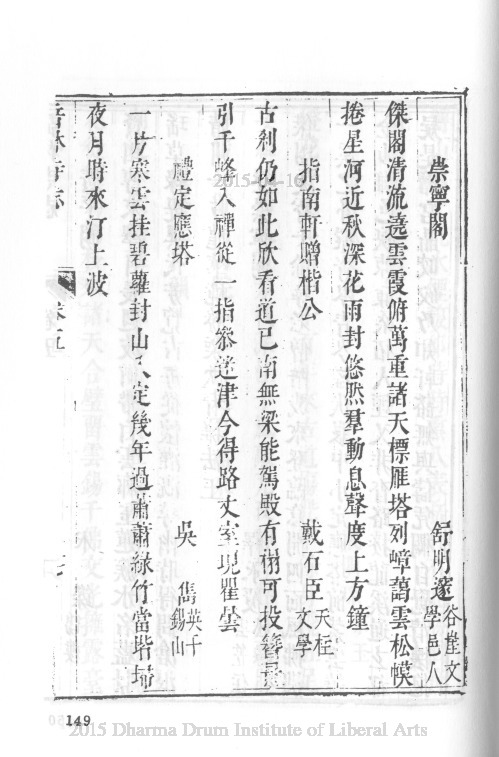 崇寧閣 舒明邃 谷崖文學邑人
傑閣清流遶雲霞俯萬重諸天標雁塔列嶂藹雲松幙
捲星河近秋深花雨封悠然羣動息聲度上方鐘
指南軒贈楷公 戴石臣 天桂文學
古刹仍如此欣看道已南無梁能駕殿有可投簪
引千峰入禪從一指叅迷津今得路丈室現瞿曇
禮定應塔 吳雋 英千錫山
一片寒雲挂碧蘿封山入定幾年過蕭蕭綠竹當堦埽
夜月時來汀上波
卷五
149
2015 Dharma Drum Institute of Liberal Arts